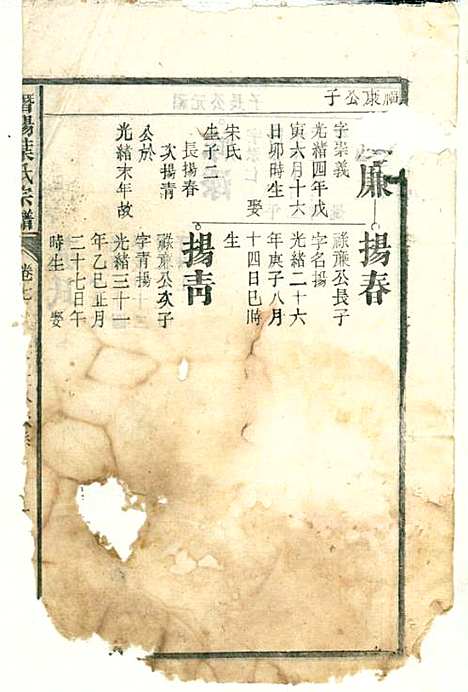 順康公子
廉
字崇義
光緒四年戊
寅六月十六
日卯時生
娶
宋氏
生子二
長揚春
次揚清
公於
光緒末年故
揚春
祿廉公長子
字名揚
光緒二十六
年庚子八月
十四日巳時
生
揚青
祿廉公次子
字青揚
光緒三十一
年乙巳正月
二十七日午
時生
娶
暨陽葉氏宗譜
卷七